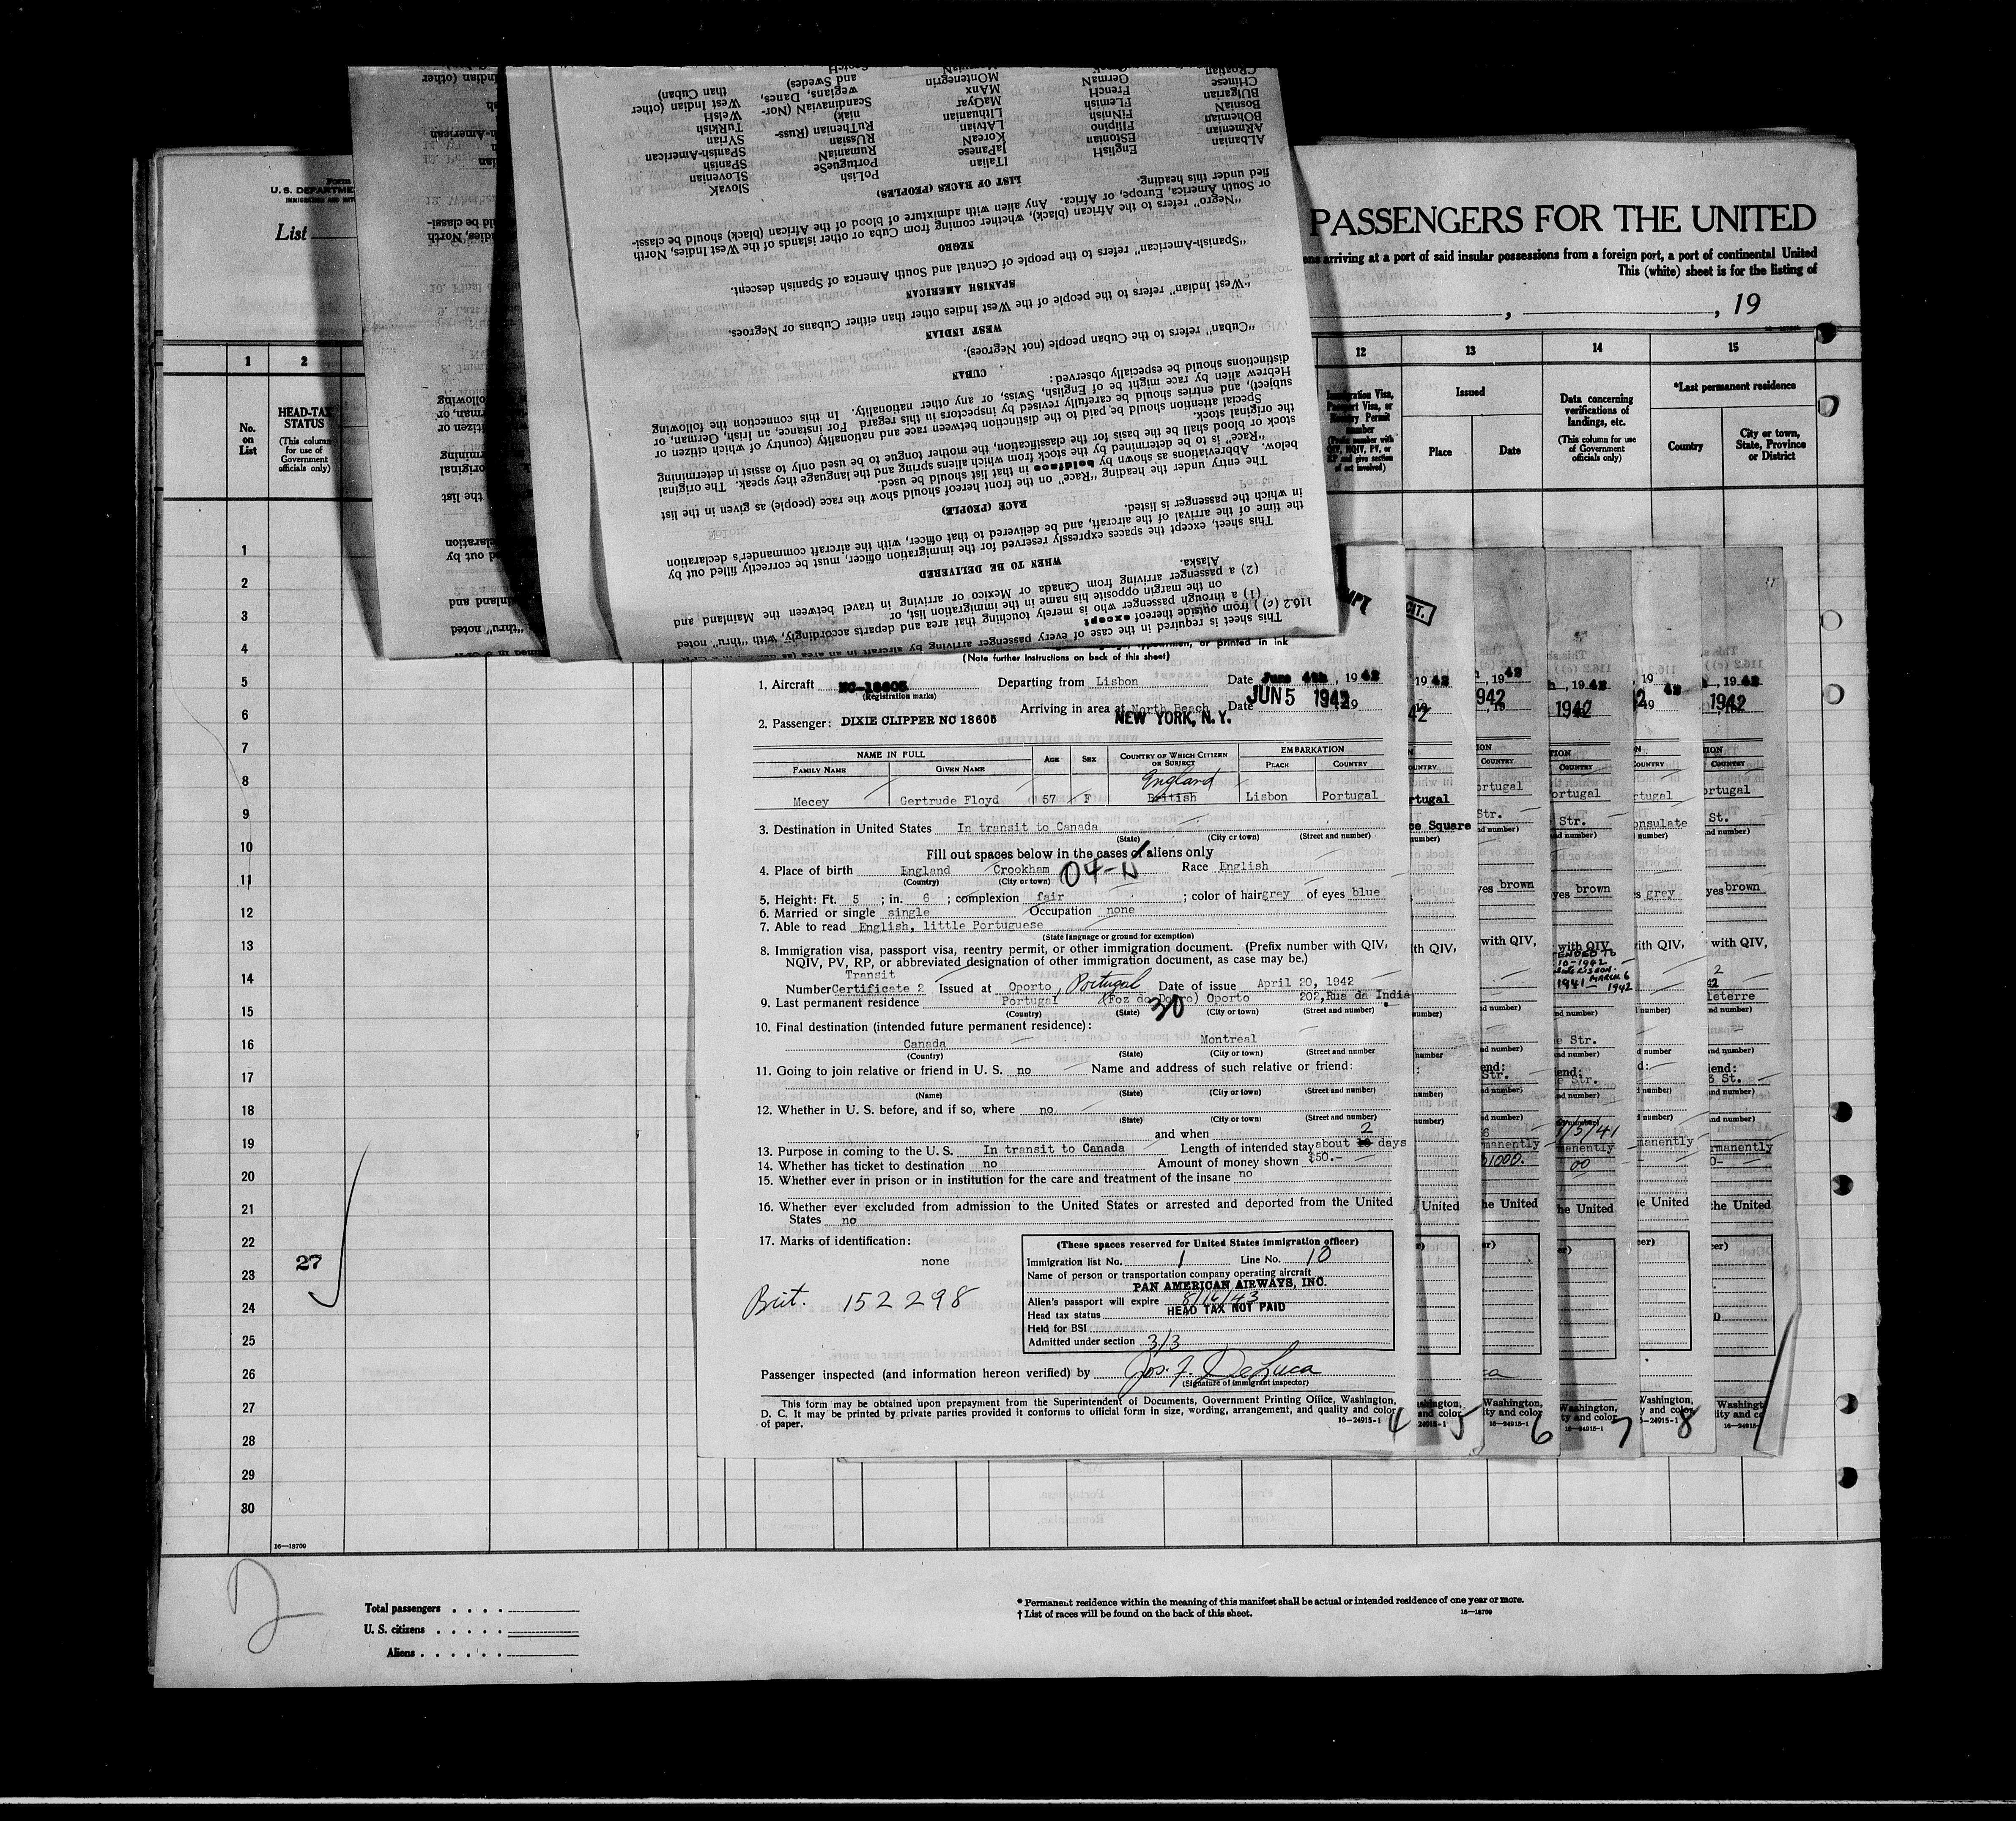 Form
U. S. DEPARTME
IMMIGRATION AND NAT
List
PASSENGERS FOR THE UNITED
ens arriving at a port of said insular possessions from a foreign port, a port of continental United
This (white) sheet is for the listing of
, , 19
1 2 12 13 14 15
No. on List
HEAD-TAX STATUS
(This column for use of Government officials only)
Immigration Visa, Passport Visa, or Reentry Permit number
(Prefix number with QIV, NQIV, PV, or RP and give section of act involved)
Issued
Place Date
Data concerning verifications of landings, etc.
(This column for use of Government officials only)
*Last permanent residence
Country
City or town, State, Province or District
This sheet is required in the case of every passenger arriving by aircraft in an area
116.2 (c) ) from outside thereof except
(1) a through passenger who is merely touching that area and departs accordingly, with "thru" noted
on the margin opposite his name in the immigration list, or
(2) a passenger arriving from Canada or Mexico or arriving in travel between the Mainland and
Alaska.
WHEN TO BE DELIVERED
This sheet, except the spaces expressly reserved for the immigration officer, must be correctly filled out by
the time of the arrival of the aircraft, and be delivered to that officer, with the aircraft commander's declaration
in which the passenger is listed.
RACE (PEOPLE)
The entry under the heading "Race" on the front hereof should show the race (people) as given in the list
below. Abbreviations as shown by boldface in that list should be used.
"Race" is to be determined by the stock from which aliens spring and the language they speak. The original
stock or blood shall be the basis for the classification, the mother tongue to be used only to assist in determining
the original stock.
Special attention should be paid to the distinction between race and nationality (country of which citizen or
subject), and entries should be carefully revised by inspectors in this regard. For instance, an Irish, German, or
Hebrew alien by race might be of English, Swiss, or any other nationality. In this connection the following
distinctions should be especially observed:
CUBAN
"Cuban" refers to the Cuban people (not Negroes).
WEST INDIAN
"West Indian" refers to the people of the West Indies other than either Cubans or Negroes.
SPANISH AMERICAN
"Spanish-American" refers to the people of Central and South America of Spanish descent.
NEGRO
"Negro" refers to the African (black), whether coming from Cuba or other islands of the West Indies, North
or South America, Europe, or Africa. Any alien with admixture of blood of the African (black) should be classi-
fied under this heading.
LIST OF RACES (PEOPLES)
ALbanian EnglisH ITalian PoLish SlovaK
ARmenian EStonian JaPanese PortugueSe SLovenian
BOhemian FIlipino KoreaN RumaniaN SPanish
BosniaN FiNnish LAtvian RUssian SPanish-American
BUlgarian FLemish Lithuanian RuThenian (Russ- SYrian
CHinese FrencH MaGyar niak) TurKish
CRoatian GermaN MAnx ScandinaviaN (Nor- WelsH
MOntenegrin wegians, Danes, West Indian (other
and Swedes) than Cuban)
or printed in ink
(Note further instructions on back of this sheet)
1. Aircraft NC-18605 Departing from Lisbon Date June 4th, 1942
(Registration marks)
JUN 5 1942
Arriving in area at North Beach Date 19
2. Passenger: DIXIE CLIPPER NC 18605 NEW YORK, N. Y.
NAME IN FULL AGE SEX COUNTRY OF WHICH CITIZEN OR SUBJECT EMBARKATION
FAMILY NAME GIVEN NAME PLACE COUNTRY
England
Mecey Gertrude Floyd 57 F British Lisbon Portugal
3. Destination in United States In transit to Canada
(State) (City or town) (Street and number)
Fill out spaces below in the cases of aliens only
4. Place of birth England Crookham 04-N Race English
(Country) (City or town)
5. Height: Ft. 5 ; in. 6 ; complexion fair ; color of hair grey of eyes blue
6. Married or single single Occupation none
7. Able to read English, little Portuguese
(State language or ground for exemption)
8. Immigration visa, passport visa, reentry permit, or other immigration document. (Prefix number with QIV,
NQIV, PV, RP, or abbreviated designation of other immigration document, as case may be.)
Transit
Number Certificate 2 Issued at Oporto, Portugal Date of issue April 20, 1942
9. Last permanent residence Portugal (Foz do Douro) Oporto 202, Rua da India
(Country) (State) 30 (City or town) (Street and number)
10. Final destination (intended future permanent residence):
Canada Montreal
(Country) (State) (City or town) (Street and number
11. Going to join relative or friend in U. S. no Name and address of such relative or friend:
(Name) (State) (City or town) (Street and number)
12. Whether in U. S. before, and if so, where no
(State) (City or town) (Street and number)
and when 2
13. Purpose in coming to the U. S. In transit to Canada Length of intended stay about days
14. Whether has ticket to destination no Amount of money shown $50.-
15. Whether ever in prison or in institution for the care and treatment of the insane no
16. Whether ever excluded from admission to the United States or arrested and deported from the United
States no
17. Marks of identification:
none
Brit. 152298
(These spaces reserved for United States immigration officer)
Immigration list No. 1 Line No. 10
Name of person or transportation company operating aircraft
PAN AMERICAN AIRWAYS, INC.
Alien's passport will expire 8/16/43
Head tax status HEAD TAX NOT PAID
Held for BSI
Admitted under section 3/3
Passenger inspected (and information hereon verified) by Jos. F. DeLuca
(Signature of immigrant inspector)
This form may be obtained upon prepayment from the Superintendent of Documents, Government Printing Office, Washington,
D. C. It may be printed by private parties provided it conforms to official form in size, wording, arrangement, and quality and color
of paper. 16—24915-1
4 5 6 7 8
1
2
3
4
5
6
7
8
9
10
11
12
13
14
15
16
17
18
19
20
21
22
27
23
24
25
26
27
28
29
30
16—18709
Total passengers
U. S. citizens
Aliens
* Permanent residence within the meaning of this manifest shall be actual or intended residence of one year or more.
† List of races will be found on the back of this sheet. 16—18709